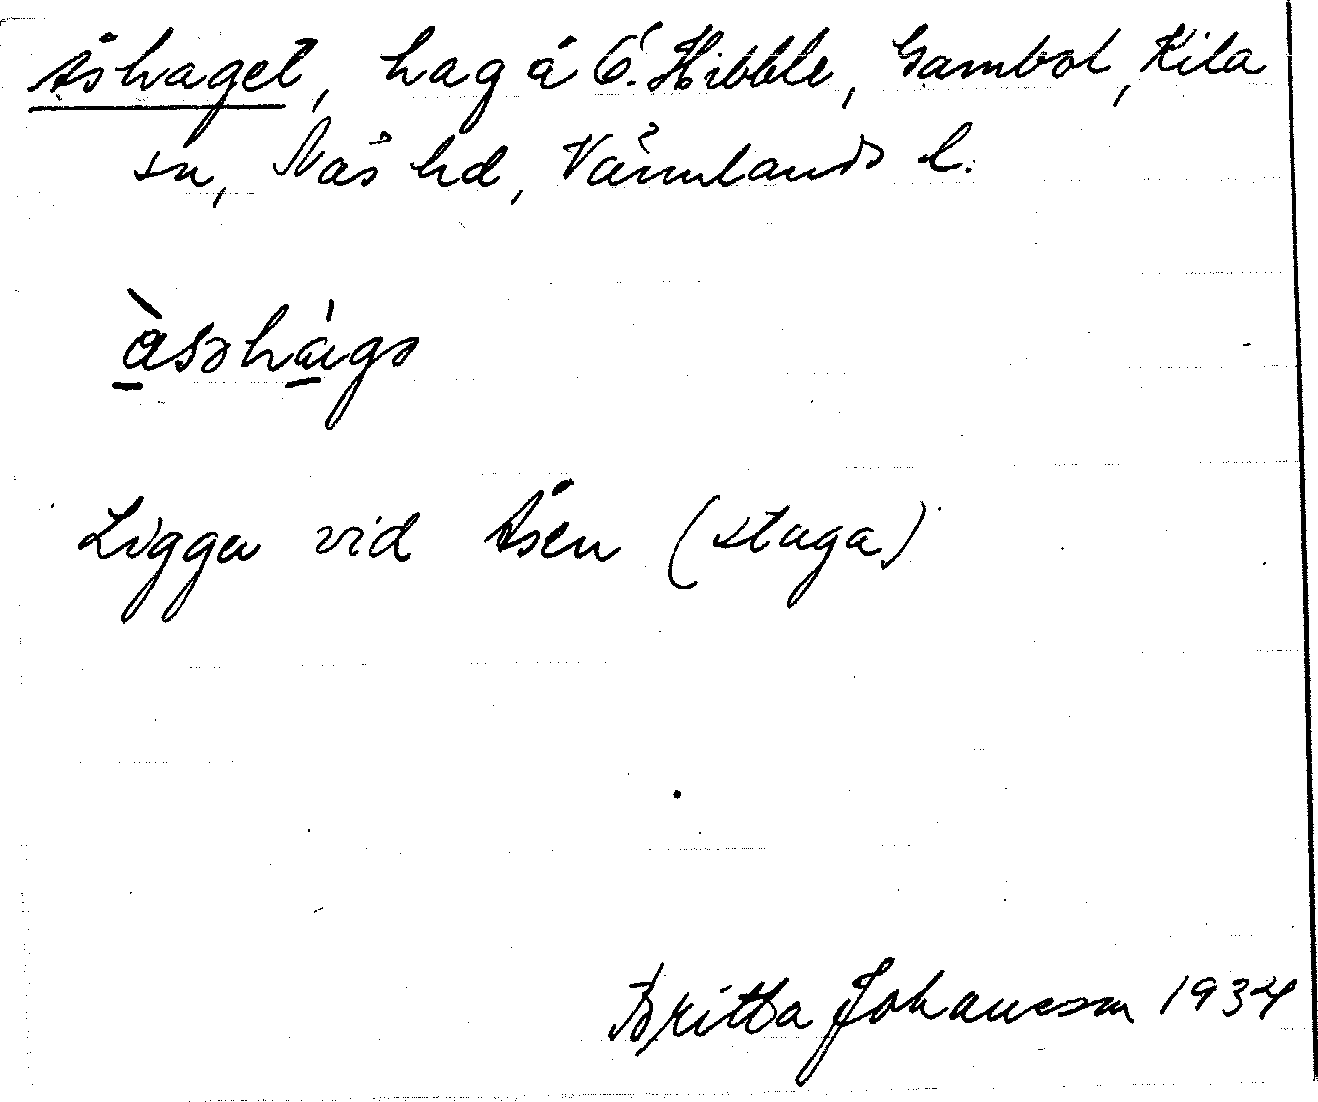 Åshaget, hag å Ö. Hibble, Gambol, Kila
sn, Näs hd, Värmlands l.
àsəhágə
Ligger vid Åsen (stuga)
Britta Johansson 1934